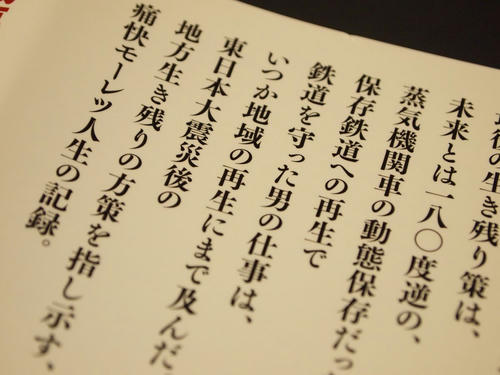 の生き残り策は、
未来とは一八〇度逆の、
蒸気機関車の動態保存だっ
保存鉄道への再生で
鉄道を守った男の仕事は、
いつか地域の再生にまで及んだ
東日本大震災後の
地方生き残りの方策を指し示す、
痛快モーレツ人生の記録。